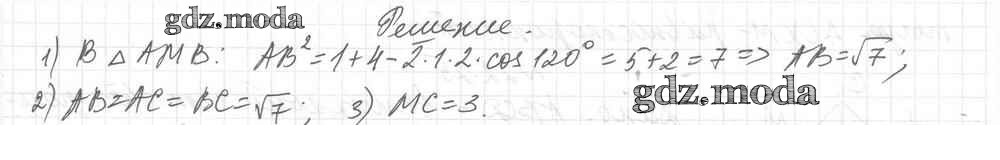 gdz.moda
Решение.
1) В △ AMB: AB² = 1 + 4 - 2·1·2·cos 120° = 5 + 2 = 7 => AB = √7;
2) AB = AC = BC = √7; 3) MC = 3.
gdz.moda